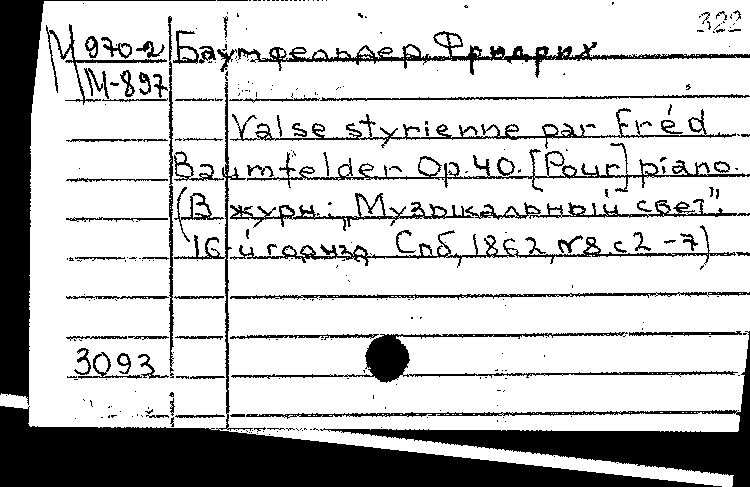 322
М 970-2 Баумфельдер, Фридрих
М-897
Valse styrienne par Fréd
Baumfelder Op.40. [Pour] piano.
(В журн.: „Музыкальный свет".
16-й год изд. Спб, 1862, №8 с 2-7)
3093